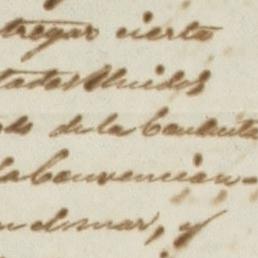 tregar cierto
tados Unidos
ado de la Conducta
la Convencion
en el mar, y